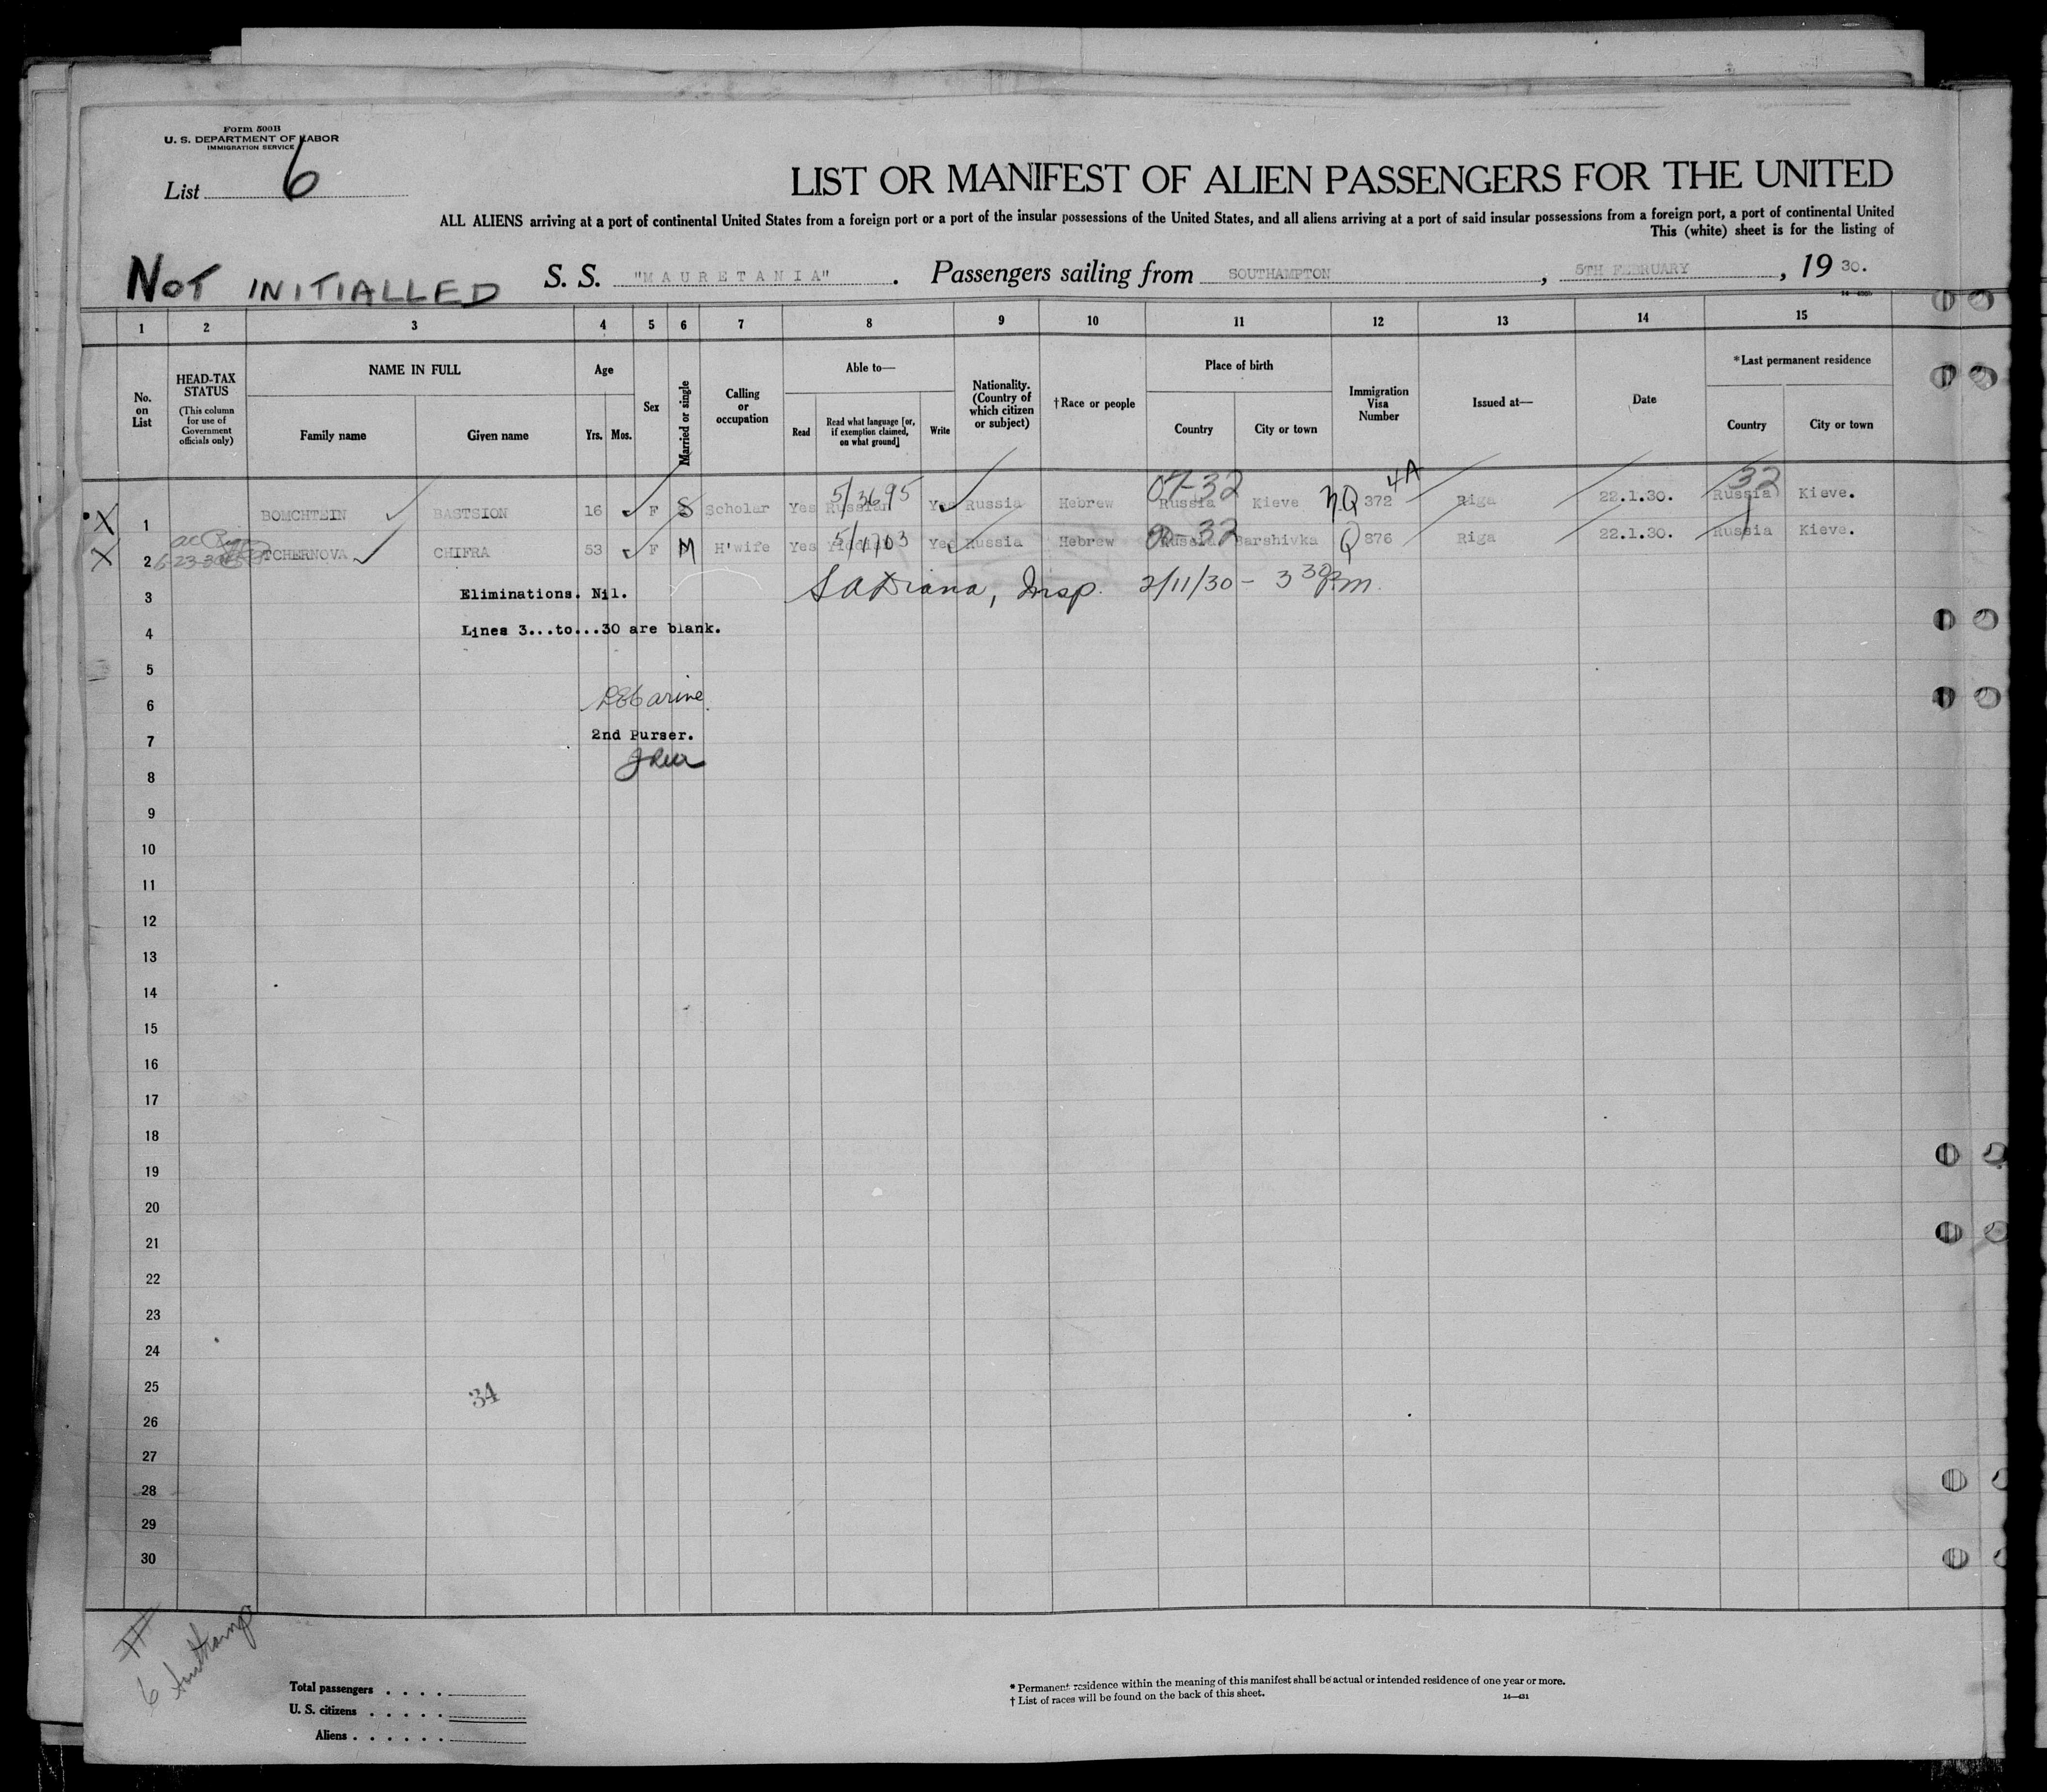 Form 500B
U. S. DEPARTMENT OF LABOR
IMMIGRATION SERVICE
List 6
LIST OR MANIFEST OF ALIEN PASSENGERS FOR THE UNITED
ALL ALIENS arriving at a port of continental United States from a foreign port or a port of the insular possessions of the United States, and all aliens arriving at a port of said insular possessions from a foreign port, a port of continental United
This (white) sheet is for the listing of
NOT INITIALLED
S. S. "MAURETANIA". Passengers sailing from SOUTHAMPTON, 5TH FEBRUARY, 19 30.
1 2 3 4 5 6 7 8 9 10 11 12 13 14 15
No. on List
HEAD-TAX STATUS
(This column for use of Government officials only)
NAME IN FULL
Family name Given name
Age
Yrs. Mos.
Sex
Married or single
Calling or occupation
Able to—
Read
Read what language [or, if exemption claimed, on what ground]
Write
Nationality. (Country of which citizen or subject)
†Race or people
Place of birth
Country City or town
Immigration Visa Number
Issued at—
Date
*Last permanent residence
Country City or town
04-32 4A 32
5/3695
X 1 BOMCHTEIN BASTSION 16 F S Scholar Yes Russian Yes Russia Hebrew Russia Kieve NQ 372 Riga 22.1.30. Russia Kieve.
5/1703 32
X 2 TCHERNOVA CHIFRA 53 F M H'wife Yes Yiddish Yes Russia Hebrew Russia Barshivka Q 876 Riga 22.1.30. Russia Kieve.
3 Eliminations. Nil. Insp. 2/11/30 - 3 30 P.m.
4 Lines 3...to...30 are blank.
5
6
7 2nd Purser.
8
9
10
11
12
13
14
15
16
17
18
19
20
21
22
23
24
25
34
26
27
28
29
30
6 Southamp
Total passengers . . . .
U. S. citizens . . . . .
Aliens . . . . . .
* Permanent residence within the meaning of this manifest shall be actual or intended residence of one year or more.
† List of races will be found on the back of this sheet.
14—431